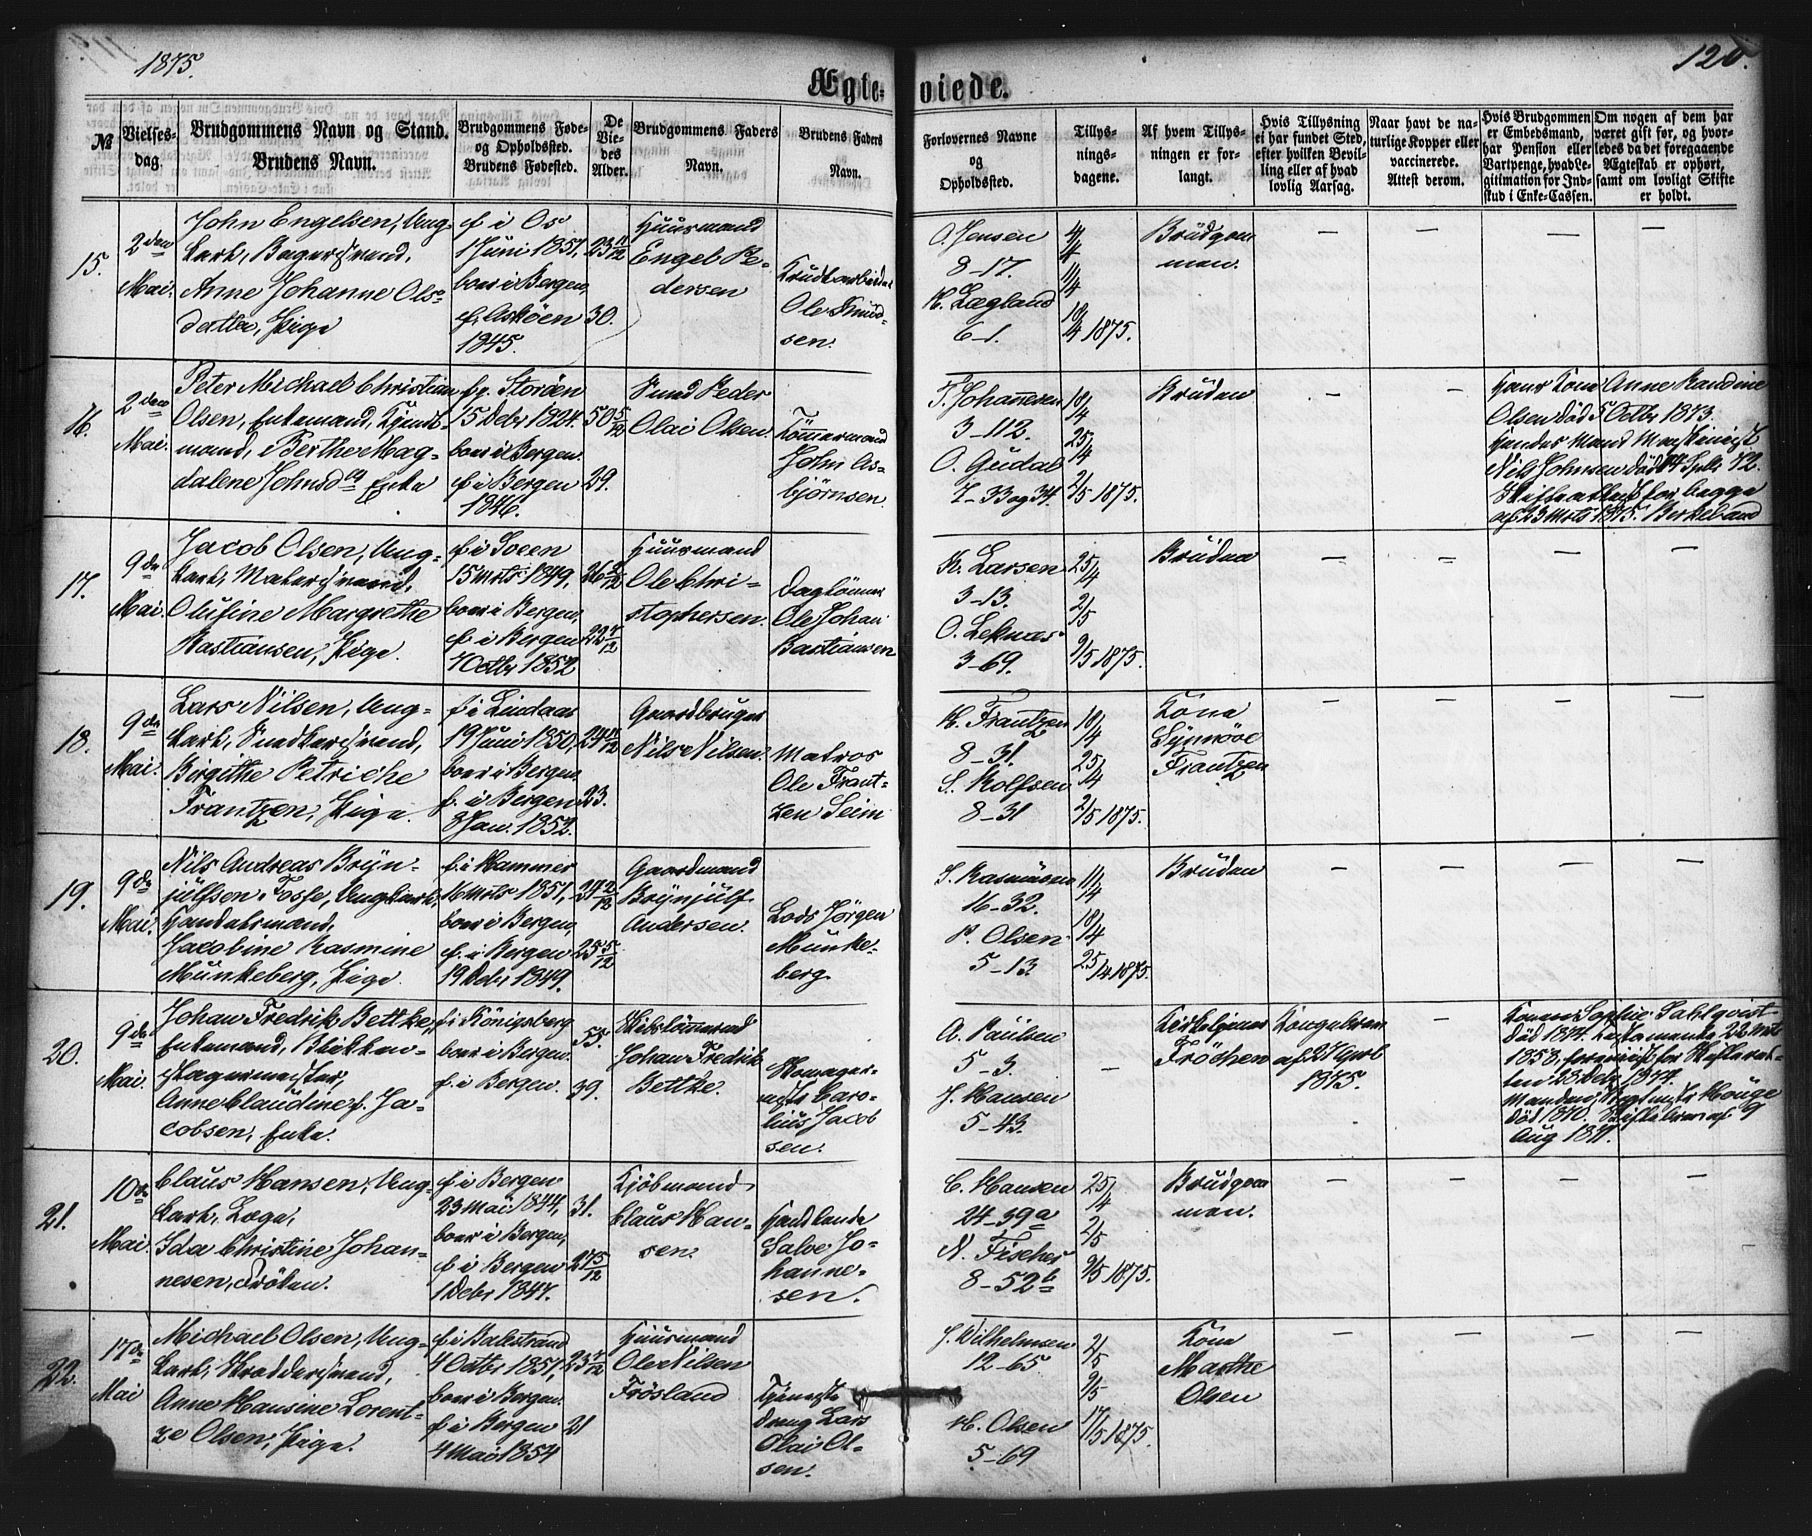 1875.
120.
Ægte-
viede.
№
Vielses-
dag.
Brudgommens Navn og Stand.
Brudens Navn.
Brudgommens Føde-
og Opholdssted.
Brudens Fødested.
De
Vie-
des
Alder.
Brudgommens Faders
Navn.
Brudens Faders
Navn.
Forlovernes Navne
og
Opholdssted.
Tillys-
nings-
dagene.
Af hvem Tillys-
ningen er for-
langt.
Hvis Tillysning
ei har fundet Sted,
efter hvilken Bevil-
ling eller af hvad
lovlig Aarsag.
Naar havt de na-
turlige Kopper eller
vaccinerede.
Attest derom.
Hvis Brudgommen
er Embedsmand,
har Pension eller
Vartpenge, hvad Le-
gitimation for Ind-
skud i Enke-Cassen.
Om nogen af dem har
været gift før, og hvor-
ledes da det foregaaende
Ægteskab er ophørt,
samt om lovligt Skifte
er holdt.
15.
2den
Mai.
John Engelsen, Ung-
karl, Bagersvend,
Anne Johanne Ols-
datter, Pige
f i Os
1 Juni 1851,
boer i Bergen,
f. Askøen
1845.
23 11/12
30.
Huusmand
Engel Pe-
dersen
Krudtarbeider
Ole Knud-
sen.
O. Jensen
8-17.
H. Lægland
6-1.
4/4
11/4
18/4 1875.
Brudgom
men.
16.
2den
Mai.
Peter Michael Christian
Olsen, Enkemand, Kjøbs-
mand, Berthe Mag-
dalene Johnsdtr Enke
fg. Storøen
15 Debr 1824.
boer i Bergen.
f. i Bergen
1846.
50 5/12
29.
Sund Peder
Olai Olsen.
Tømmermand
John As-
bjørnsen.
T. Johannesen
3-112.
O. Gudal
7-33 og 34.
18/4
25/4
2/5 1875.
Bruden
Hans Kone Anne Randine
Olsen død 5 Octbr 1873.
Hendes Mand Maskinist
Nils Johnsen død 14 Septb. 72.
Skifteattest for begge
af 23 Mrts 1875. Berkeland
17.
9de
Mai.
Jacob Olsen, Ung-
karl, Malersvend,
Olufine Margrethe
Bastiansen, Pige.
f i Sveen
15 Mrts 1849,
boer i Bergen,
f. i Bergen
7 Octbr 1852
26 2/12
22 7/12
Huusmand
Ole Chri-
stophersen.
Dagløhner
Ole Johan
Bastiansen
K. Larsen
3-13.
O. Leknæs
3-69.
25/4
2/5
9/5 1875.
Bruden
18.
9de
Mai.
Lars Nilsen, Ung-
karl, Snedkersvend,
Birgithe Petriche
Frantzen, Pige.
f. i Lindaas
19 Juni 1850,
boer i Bergen
f. i Bergen
8 Jan. 1852.
24 11/12
23.
Gaardbruger
Nils Nilsen.
Matros
Ole Frant-
zen Seim
H. Frantzen
8-31.
S. Rolfsen
8-31
18/4
25/4
2/5 1875.
Kone
Synnøve
Frantzen
19.
9de
Mai.
Nils Andreas Bryn-
julfson Fosse, Ungkarl,
Handelsmand,
Jacobine Rasmine
Munkeberg, Pige.
f. i Hammer
16 Mrts 1851,
boer i Bergen,
f. i Bergen
19 Debr 1849.
24 2/12
25 5/12
Gaardmand
Brynjulf
Andersen.
Lods Jørgen
Munke-
berg.
S. Rasmussen
16-32.
P. Olsen
5-13
11/4
18/4
25/4 1875.
Bruden
20.
9de
Mai.
Johan Fredrik Bettke,
Enkemand, Blikken-
slagermester,
Anne Claudine f. Ja-
cobsen, Enke.
f i Königsberg
boer i Bergen.
f. i Bergen.
55.
39.
Skibstømmermd
Johan Fredrik
Bettke.
Skomager-
mstr Caro-
lius Jacob
sen.
A. Paulsen
5-3.
J. Hansen
5-43.
Kirketjener
Frøchen
Kongebrev
af 27 April
1875.
Konen Sophie Dahlqvist
død 1874. Testamente 22 Mrts
1858, forevist for Skifteret-
ten 28 Debr 1874.
Manden, Houge
død 1870. Skiftebrev af 9
Aug 1871.
21.
10de
Mai.
Claus Hansen, Ung-
karl, Læge,
Ida Christine Johan-
nesen, Frøken.
f i Bergen
23 Mai 1844,
boer i Bergen,
f i Bergen
1 Debr 1847.
31.
27 5/12
Kjøbmand
Claus Han-
sen.
Handlende
Salve Jo-
hanne-
sen.
C. Hansen
24-39a
N. Fischer
8-52b
25/4
2/5
9/5 1875.
Brudgom
men.
22.
17de
Mai
Michael Olsen, Ung-
karl, Skræddersvend,
Anne Hansine Lorent-
ze Olsen, Pige.
f i Balestrand
4 Octbr 1851,
boer i Bergen.
f i Bergen
4 Mai 1854
23 7/12
21
Huusmand
Ole Nilsen
Frøsland
Tjeneste
dreng Lars
Olai Ol-
sen.
J. Wilhelmsen
12-65
H. Olsen
5-69
2/5
9/5
17/5 1875.
Kone
Marthe
Olsen